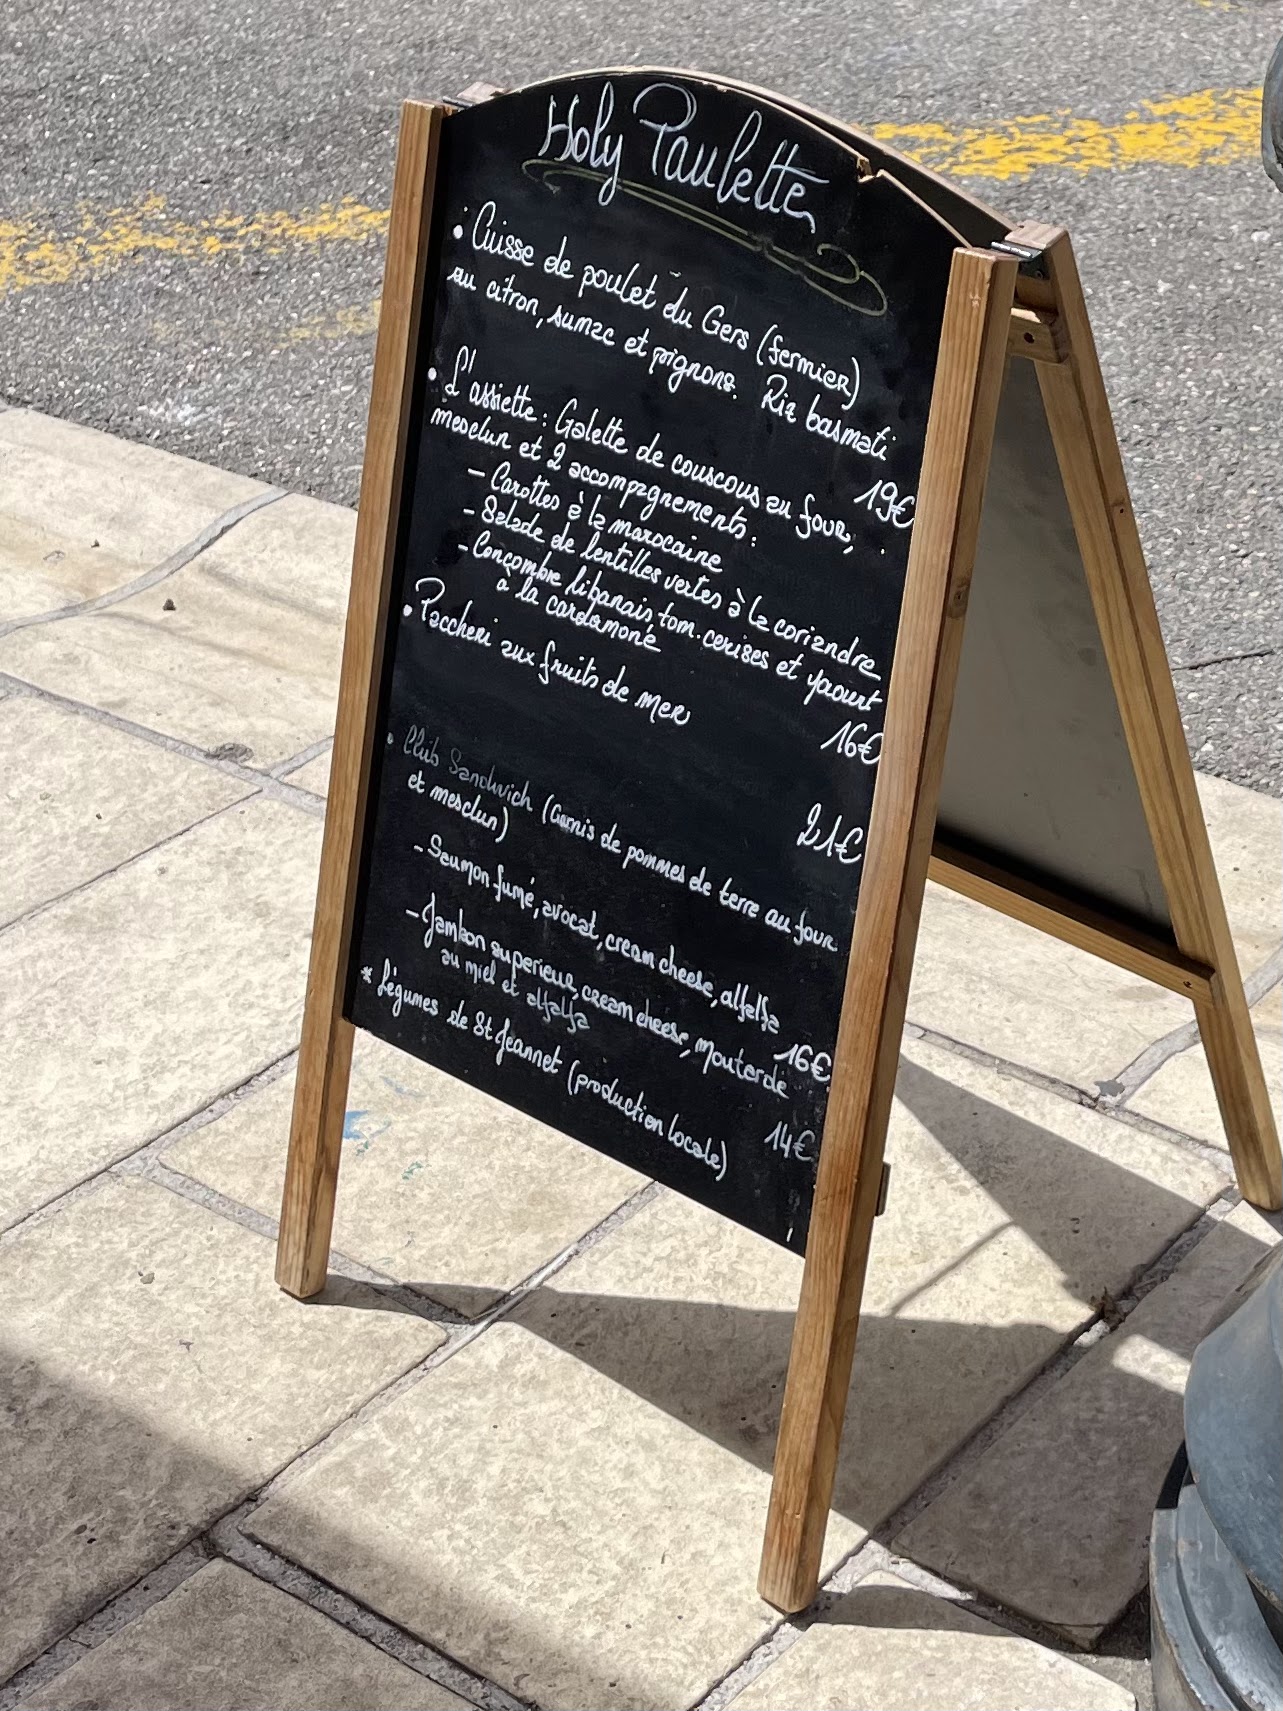 Holy Paulette
• Cuisse de poulet du Gers (fermier)
au citron, sumac et pignons. Riz basmati
19€
• L'assiette : Galette de couscous au four,
mesclun et 2 accompagnements :
- Carottes à la marocaine
- Salade de lentilles vertes à la coriandre
- Concombre libanais, tom. cerises et yaourt
à la cardamone
16€
• Paccheri aux fruits de mer
21€
• Club Sandwich (Garnis de pommes de terre au four
et mesclun)
- Saumon fumé, avocat, cream cheese, alfalfa
16€
- Jambon superieur, cream cheese, moutarde
au miel et alfalfa
14€
* Légumes de St Jeannet (production locale)